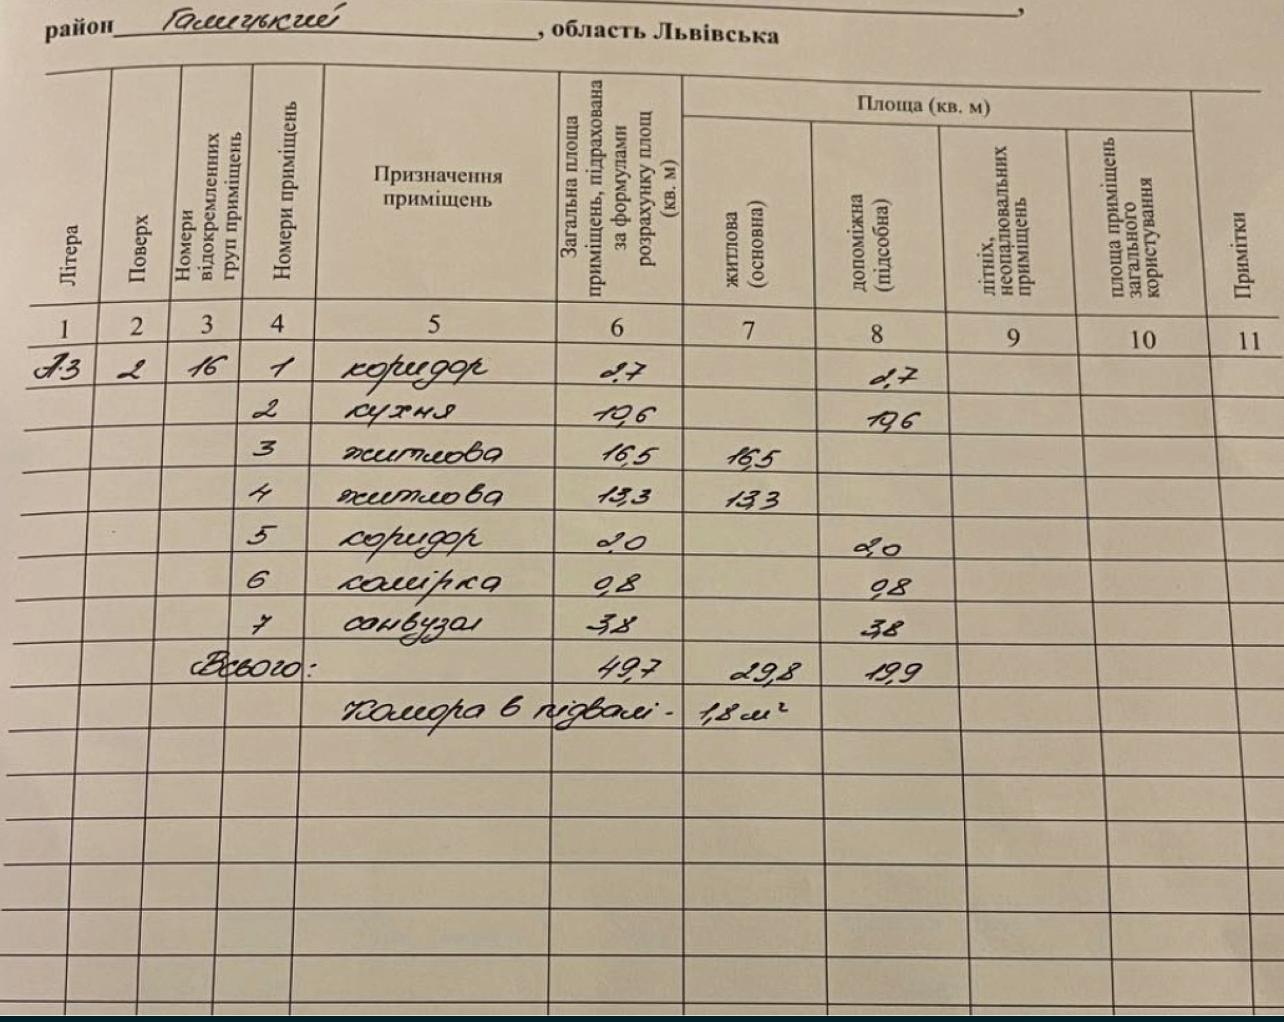 район Галицький, область Львівська
Літера
Поверх
Номери відокремлених груп приміщень
Номери приміщень
Призначення приміщень
Загальна площа приміщень, підрахована за формулами розрахунку площ (кв. м)
Площа (кв. м)
житлова (основна)
допоміжна (підсобна)
літніх, неопалювальних приміщень
площа приміщень загального користування
Примітки
1 2 3 4 5 6 7 8 9 10 11
А-3 2 16 1 коридор 2,7 2,7
2 кухня 10,6 10,6
3 житлова 16,5 16,5
4 житлова 13,3 13,3
5 коридор 2,0 2,0
6 комірка 0,8 0,8
7 санвузол 3,8 3,8
Всього: 49,7 29,8 19,9
Комора в підвалі - 1,8 м²